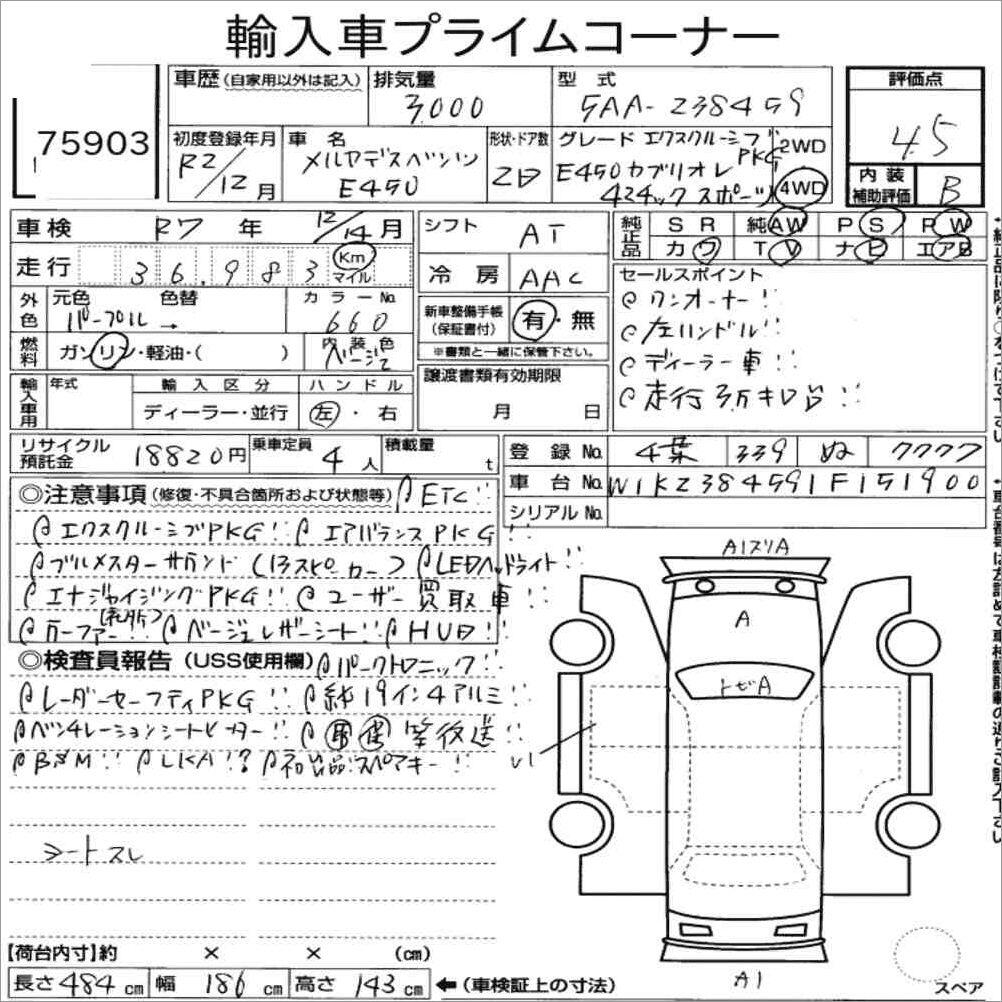 輸入車プライムコーナー
75903
車歴 (自家用以外は記入) 排気量 3000 型式 5AA-238459 評価点 4.5
初度登録年月 R2/12月 車名 メルセデスベンツ E450 形状・ドア数 2D
グレード エクスクルーシブPKG E450カブリオレ 4マチックスポーツ 2WD 4WD
内装補助評価 B
車検 R7年 12/14月 シフト AT
純正品 SR 純AW PS PW
カワ TV ナビ エアB
走行 36,983 Km マイル 冷房 AAC
外色 元色 パープル → 色替 カラーNo. 660
新車整備手帳 (保証書付) 有・無
※書類と一緒に保管下さい。
燃料 ガソリン・軽油・( ) 内装色 ベージュ
セールスポイント
ワンオーナー!!
左ハンドル!!
ディーラー車!!
走行3万キロ台!!
輸入車用 年式 輸入区分 ハンドル
ディーラー・並行 左・右
譲渡書類有効期限 月 日
リサイクル預託金 18820円 乗車定員 4人 積載量 t
登録No. 339 ぬ 7777
車台No. W1K2384591F151900
シリアルNo.
◎注意事項 (修復・不具合箇所および状態等) ETC!!
エクスクルーシブPKG!! エアバランスPKG
ブルメスターサラウンド (13スピーカー) LEDヘッドライト!!
エナジャイジングPKG!! ユーザー買取車!!
ベージュレザーシート!! HUD!!
◎検査員報告 (USS使用欄) パークトロニック!!
レーダーセーフティPKG!! 純19インチアルミ!!
ベンチレーションシートヒーター!! 等後送
BSM!! LKA!! スペアキー!!
シートスレ
A1スリA
A
トビA
U1
A1
スペア
【荷台内寸】約 × × (cm)
長さ 484 cm 幅 186 cm 高さ 143 cm ←(車検証上の寸法)